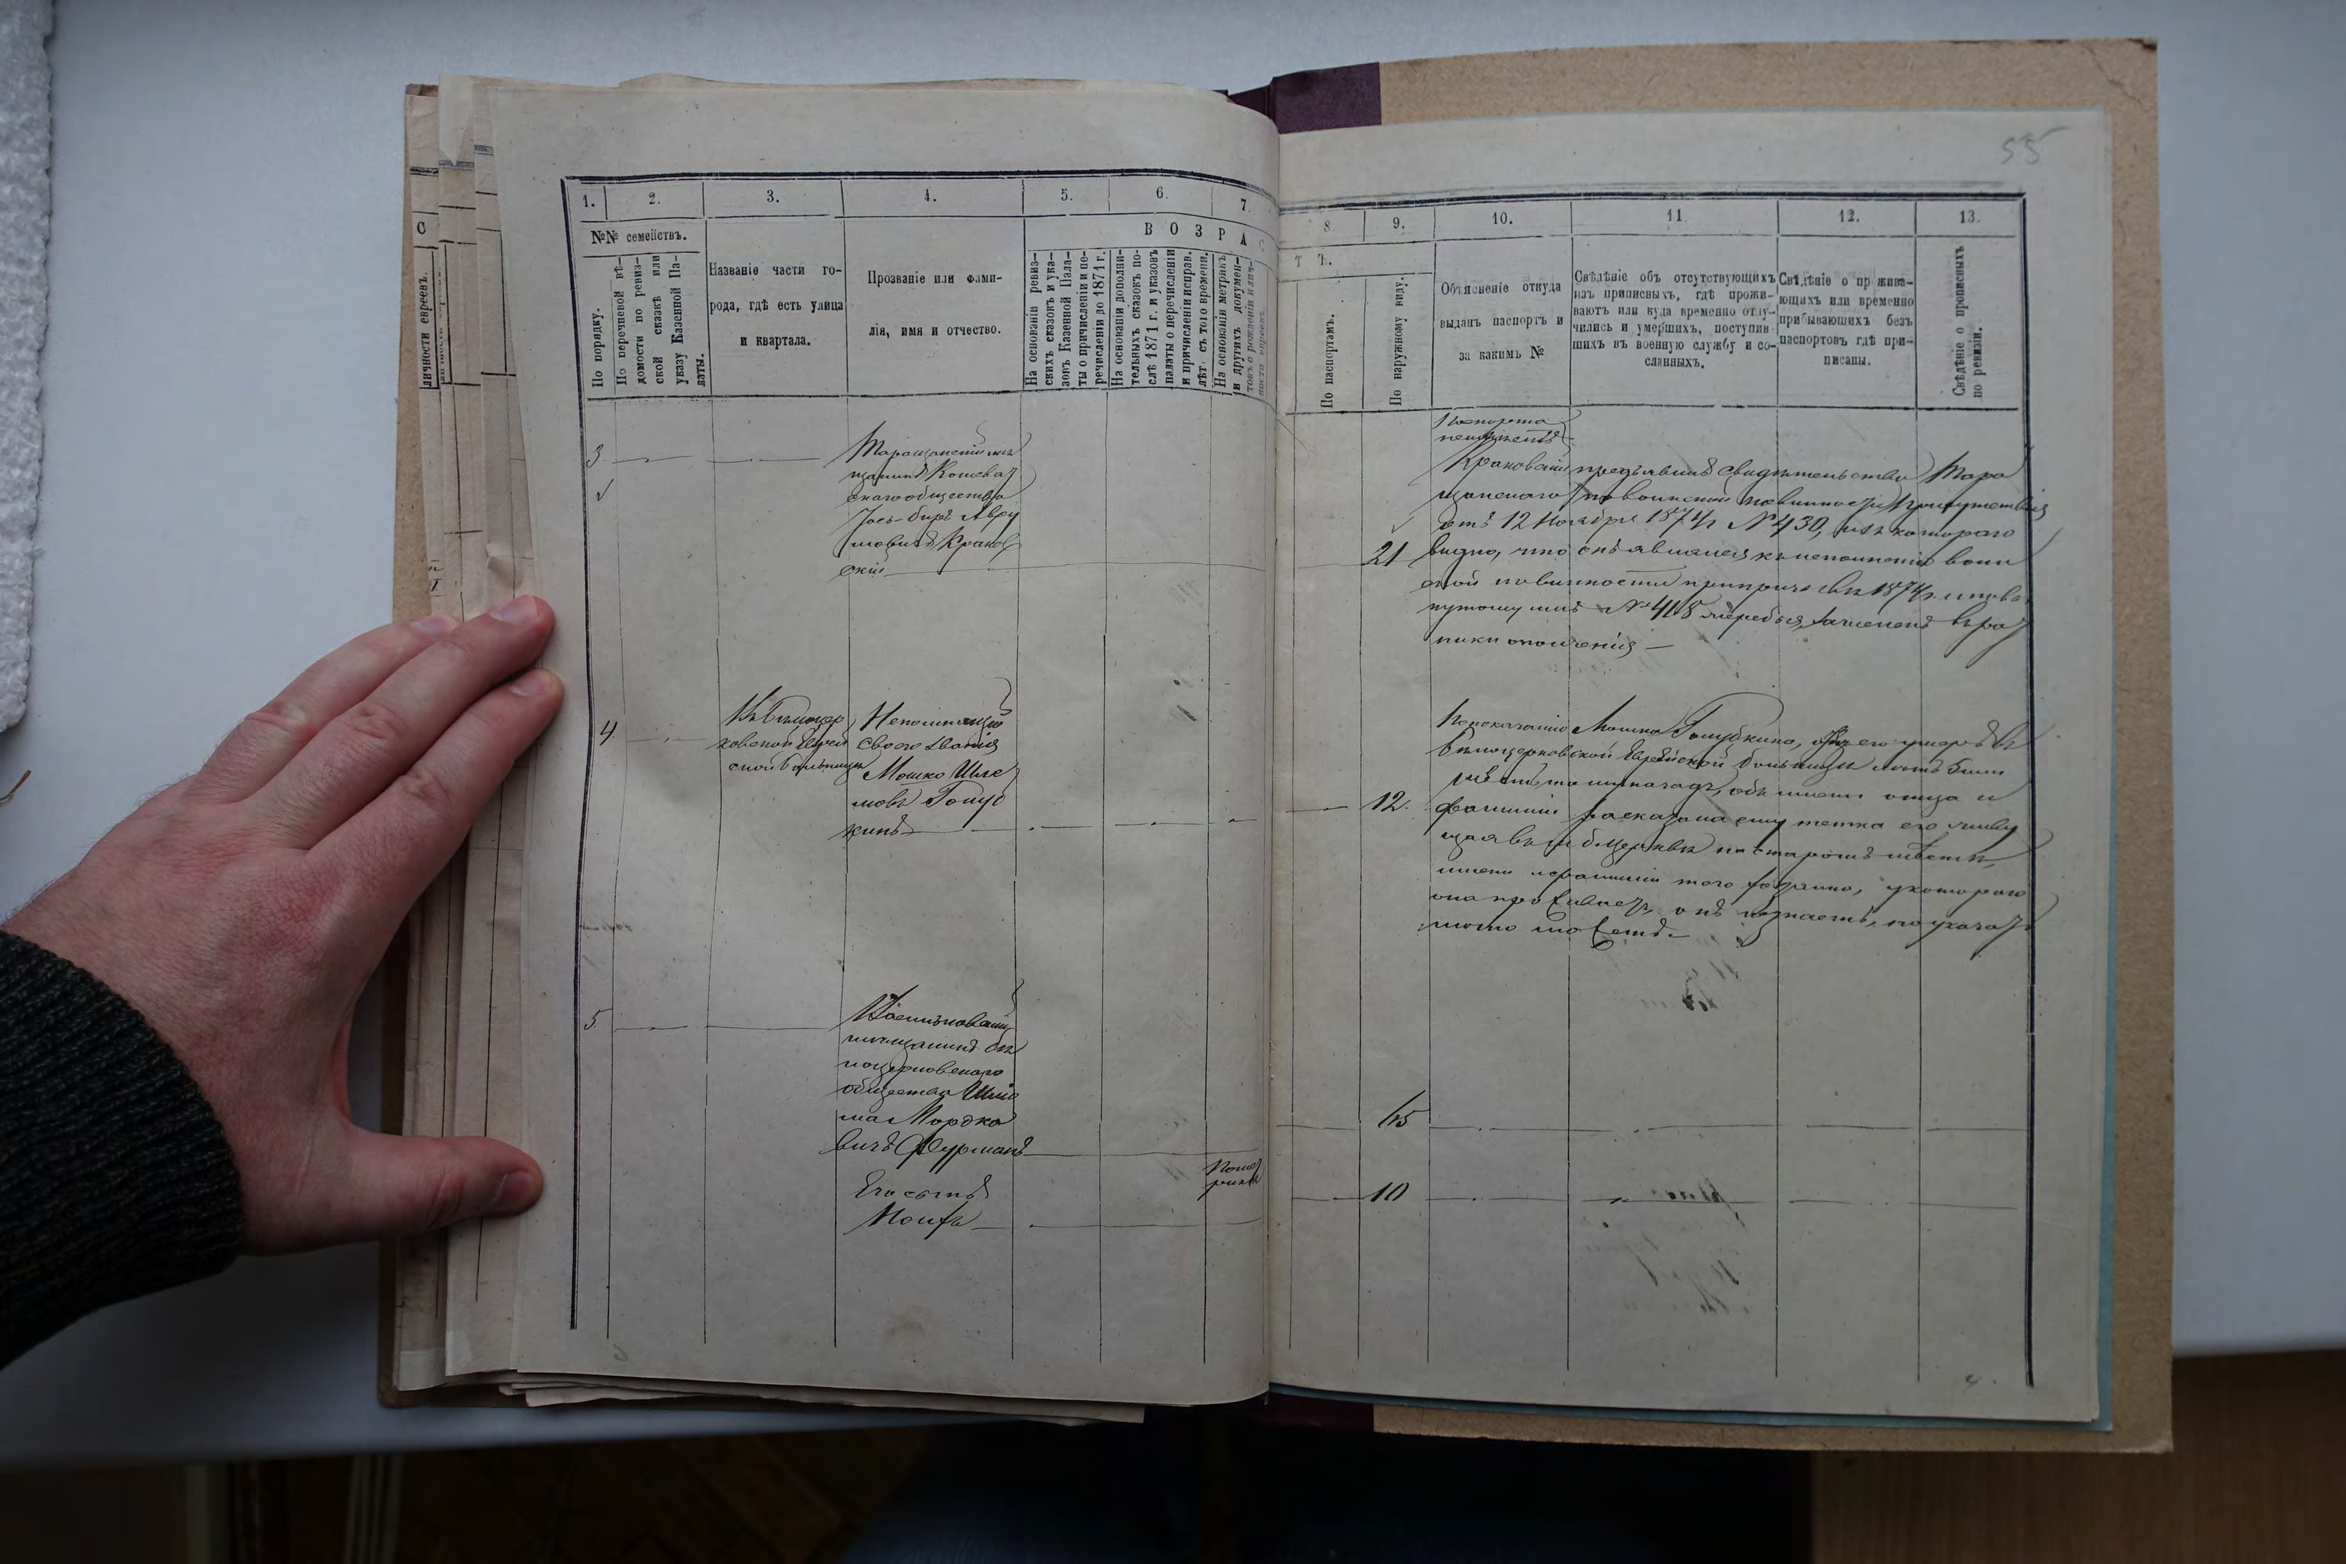 55
1.
2.
3.
4.
5.
6.
7.
8.
9.
10.
11.
12.
13.
№№ семействъ.
По порядку.
По перечневой вѣ-
домости по ревиз-
ской сказкѣ или
указу Казенной Па-
латы.
Названіе части го-
рода, гдѣ есть улица
и квартала.
Прозваніе или фами-
лія, имя и отчество.
ВОЗРАС
ТЪ.
На основаніи ревиз-
скихъ сказокъ и ука-
зовъ Казенной Пала-
ты о причисленіи и пе-
речисленіи до 1871 г.
На основаніи дополни-
тельныхъ сказокъ по-
слѣ 1871 г. и указовъ
палаты о перечисленіи
и причисленіи исправ.
лѣт. съ того времени.
На основаніи метрикъ
и другихъ докумен-
товъ о рожденіи и лич-
ности евреевъ.
По паспортамъ.
По наружному виду.
Объясненіе откуда
выданъ паспортъ и
за какимъ №
Свѣдѣніе объ отсутствующихъ
изъ приписныхъ, гдѣ прожи-
ваютъ или куда временно отлу-
чились и умершихъ, поступив-
шихъ въ военную службу и со-
сланныхъ.
Свѣдѣніе о прожива-
ющихъ или временно
прибывающихъ безъ
паспортовъ гдѣ при-
писаны.
Свѣдѣніе о прописныхъ
по ревизіи.
3
Таращанскій мѣ
щанинъ Кошева
скаго общества
Іось-беръ Авру
мовичъ Краков
скій
21
Паспорта
неимѣетъ
Краковскій предъявилъ свидѣтельство Тара
щанскаго по воинской повинности присутствія
отъ 12 Ноября 1874 г. № 430, изъ котораго
видно, что онъ являлся къ исполненію воин
ской повинности при призывѣ въ 1874 г. и по вы
нутому имъ № 418 жеребья, зачисленъ въ рат
ники ополченія —
4
Въ Бѣлоцер
ковской Еврей
ской больницѣ
Непомнящій
своего званія
Мошко Шле
мовъ Голуб
кинъ
12.
По показанію Мошка Голубкина, отецъ его умеръ въ
Бѣлоцерковской Еврейской больницѣ лѣтъ
тому назадъ, объ имени отца и
фамиліи расказала ему тетка его живу
щая въ Бѣл. Церкви на старомъ мѣстѣ,
имени и фамиліи того хозяина, у котораго
она проживаетъ онъ незнаетъ, но указать
можетъ
5.
Васильковскій
мѣщанинъ бѣ
лоцерковскаго
общества Шлё
ма Мордко
вичъ Фурманъ
45
Его сынъ
Іосифъ
По мет
рикѣ
10
4.